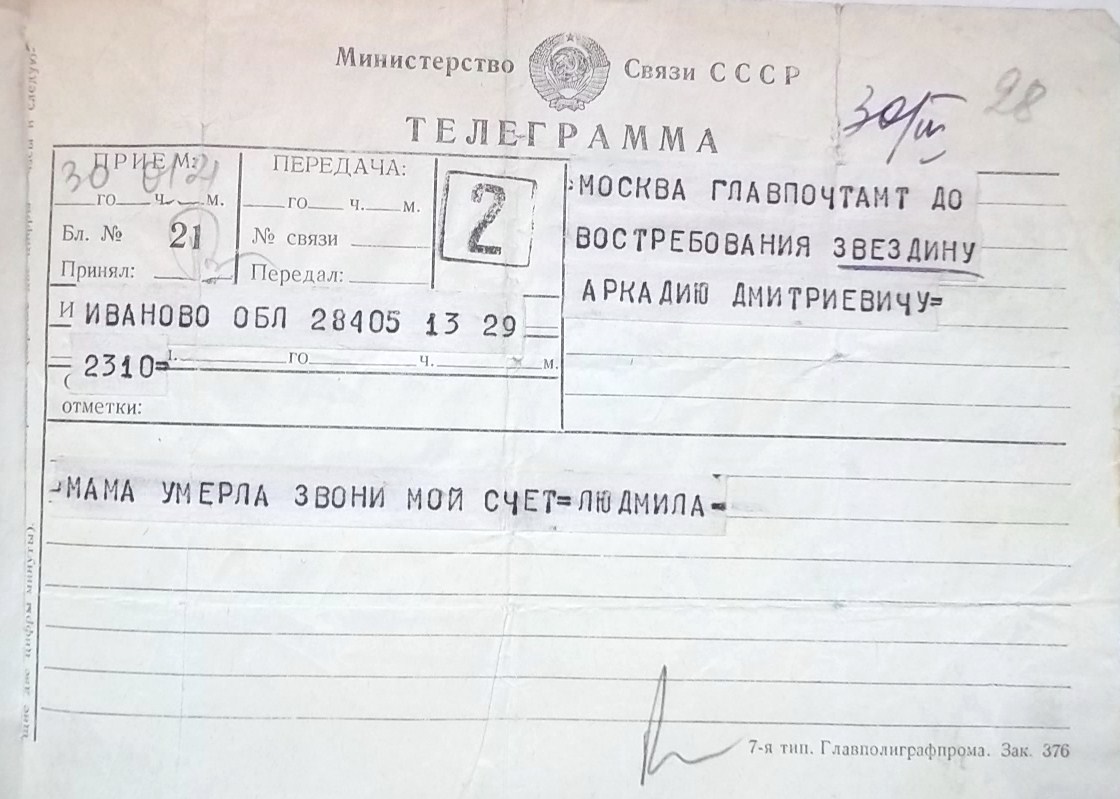 Министерство Связи СССР
ТЕЛЕГРАММА
30/III 28
ПРИЕМ:
30
го ч. м.
Бл. № 21
Принял:
ПЕРЕДАЧА:
го ч. м.
№ связи
Передал:
2
МОСКВА ГЛАВПОЧТАМТ ДО
ВОСТРЕБОВАНИЯ ЗВЕЗДИНУ
АРКАДИЮ ДМИТРИЕВИЧУ=
И ИВАНОВО ОБЛ 28405 13 29
2310=
го ч. м.
отметки:
МАМА УМЕРЛА ЗВОНИ МОЙ СЧЕТ=ЛЮДМИЛА-
7-я тип. Главполиграфпрома. Зак. 376